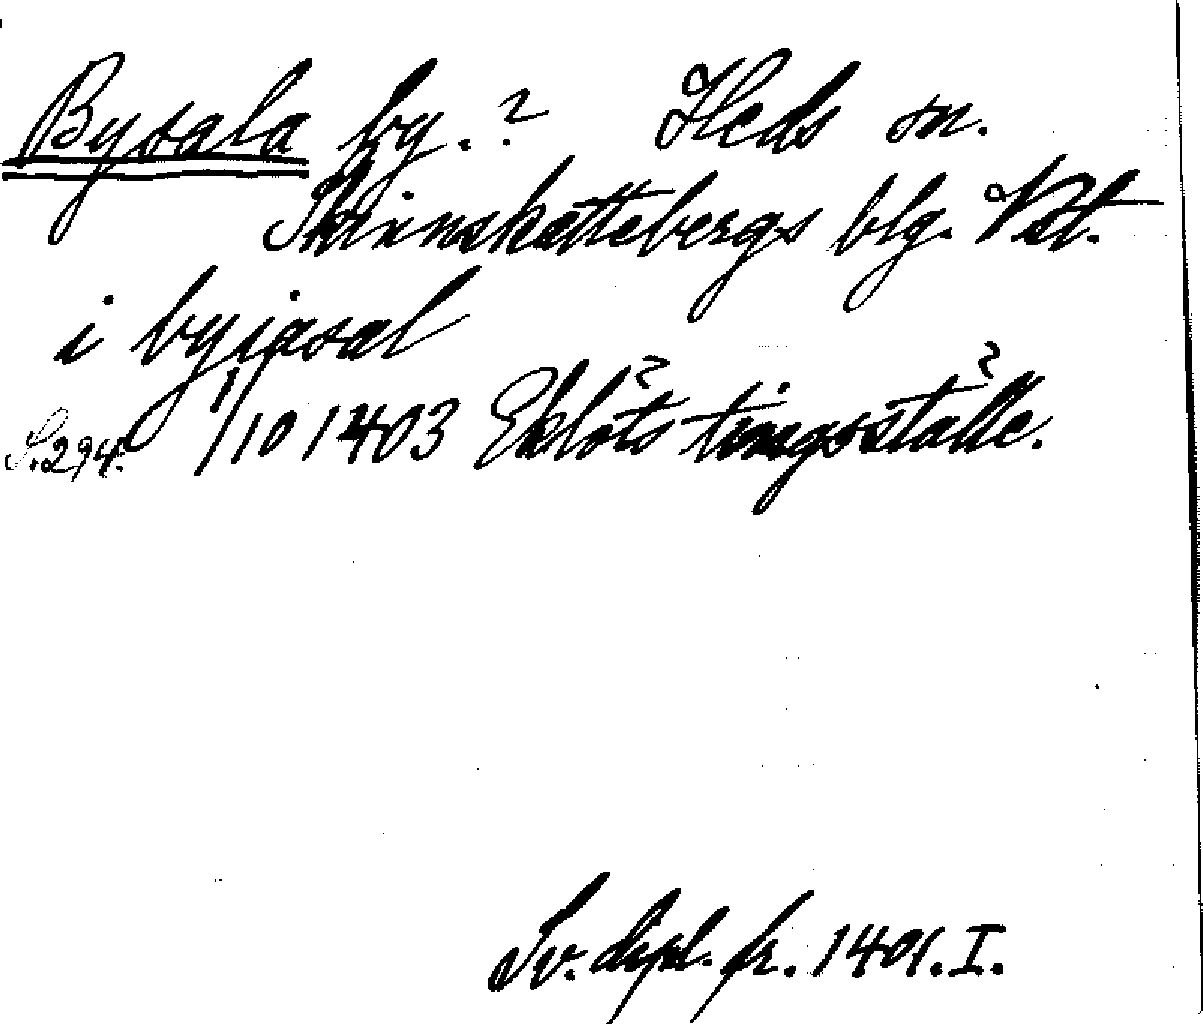 Bysala by.? Heds sn.
Skinnskattebergs blg. Vstl.
i byiasal
S.294. 1/10 1403 Eklöts tingsställe.
Sv. dipl. fr. 1401. I.